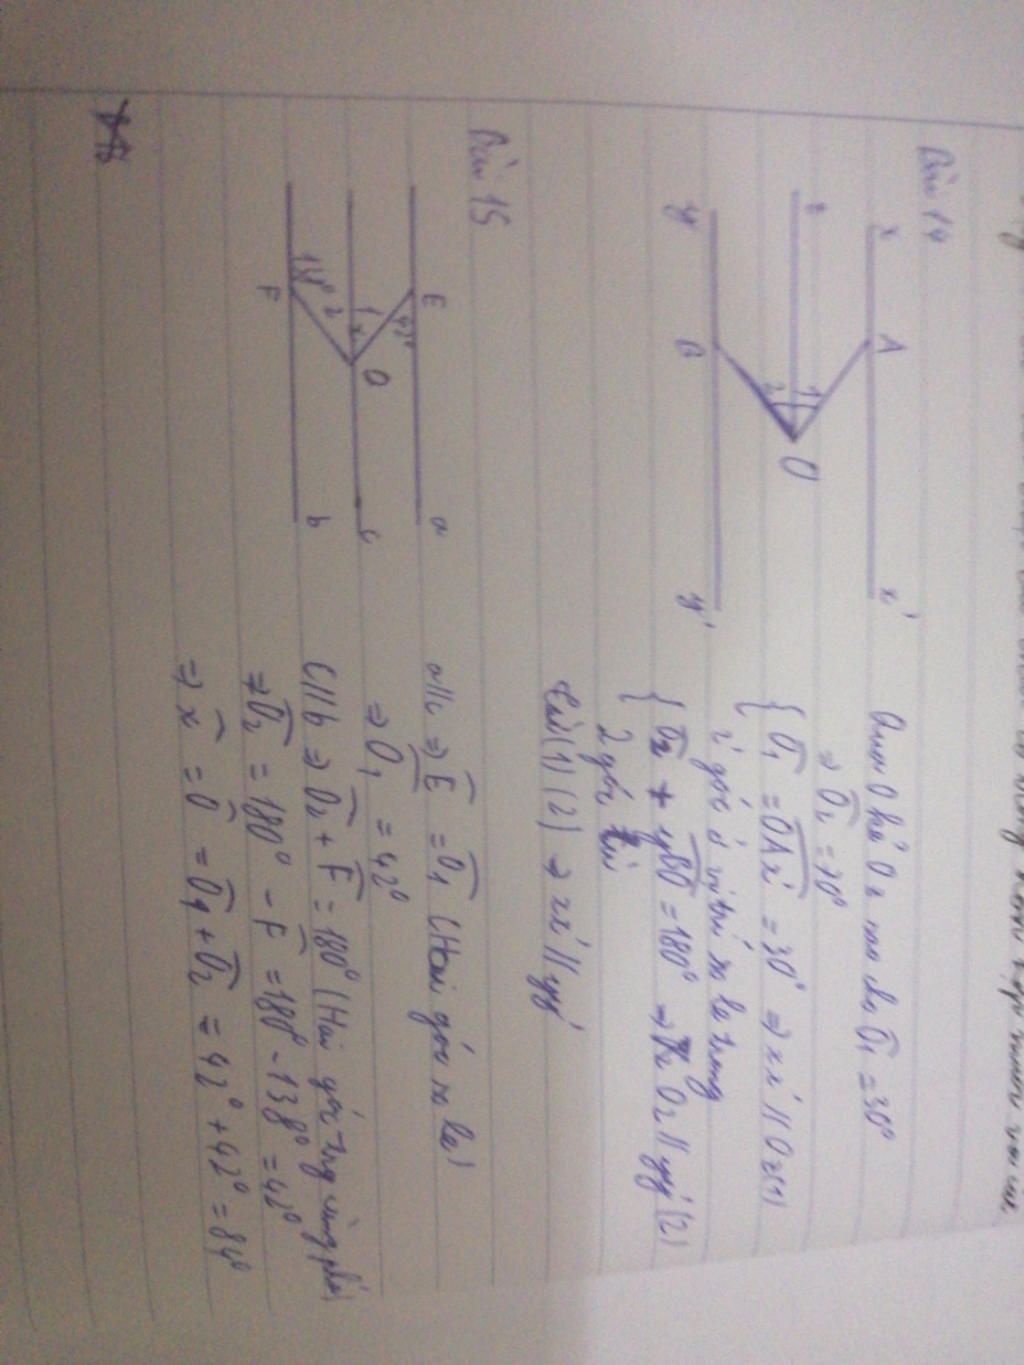 Bài 14
x A x'
z
1
2 O
y B y'
Qua O kẻ Oz sao cho Ô1 = 30°
⇒ Ô2 = 70°
{ Ô1 = OAx' = 30° ⇒ xx' // Oz (1)
2 góc ở vị trí so le trong
{ Ô2 + yBO = 180° ⇒ Oz // yy' (2)
2 góc
(1) (2) ⇒ xx' // yy'
Bài 15
E a
42°
1
x O c
2
138°
F b
a//c ⇒ Ê = Ô1 (Hai góc so le)
⇒ Ô1 = 42°
c//b ⇒ Ô2 + F = 180° (Hai góc trong cùng phía)
⇒ Ô2 = 180° - F = 180° - 138° = 42°
⇒ x = Ô = Ô1 + Ô2 = 42° + 42° = 84°